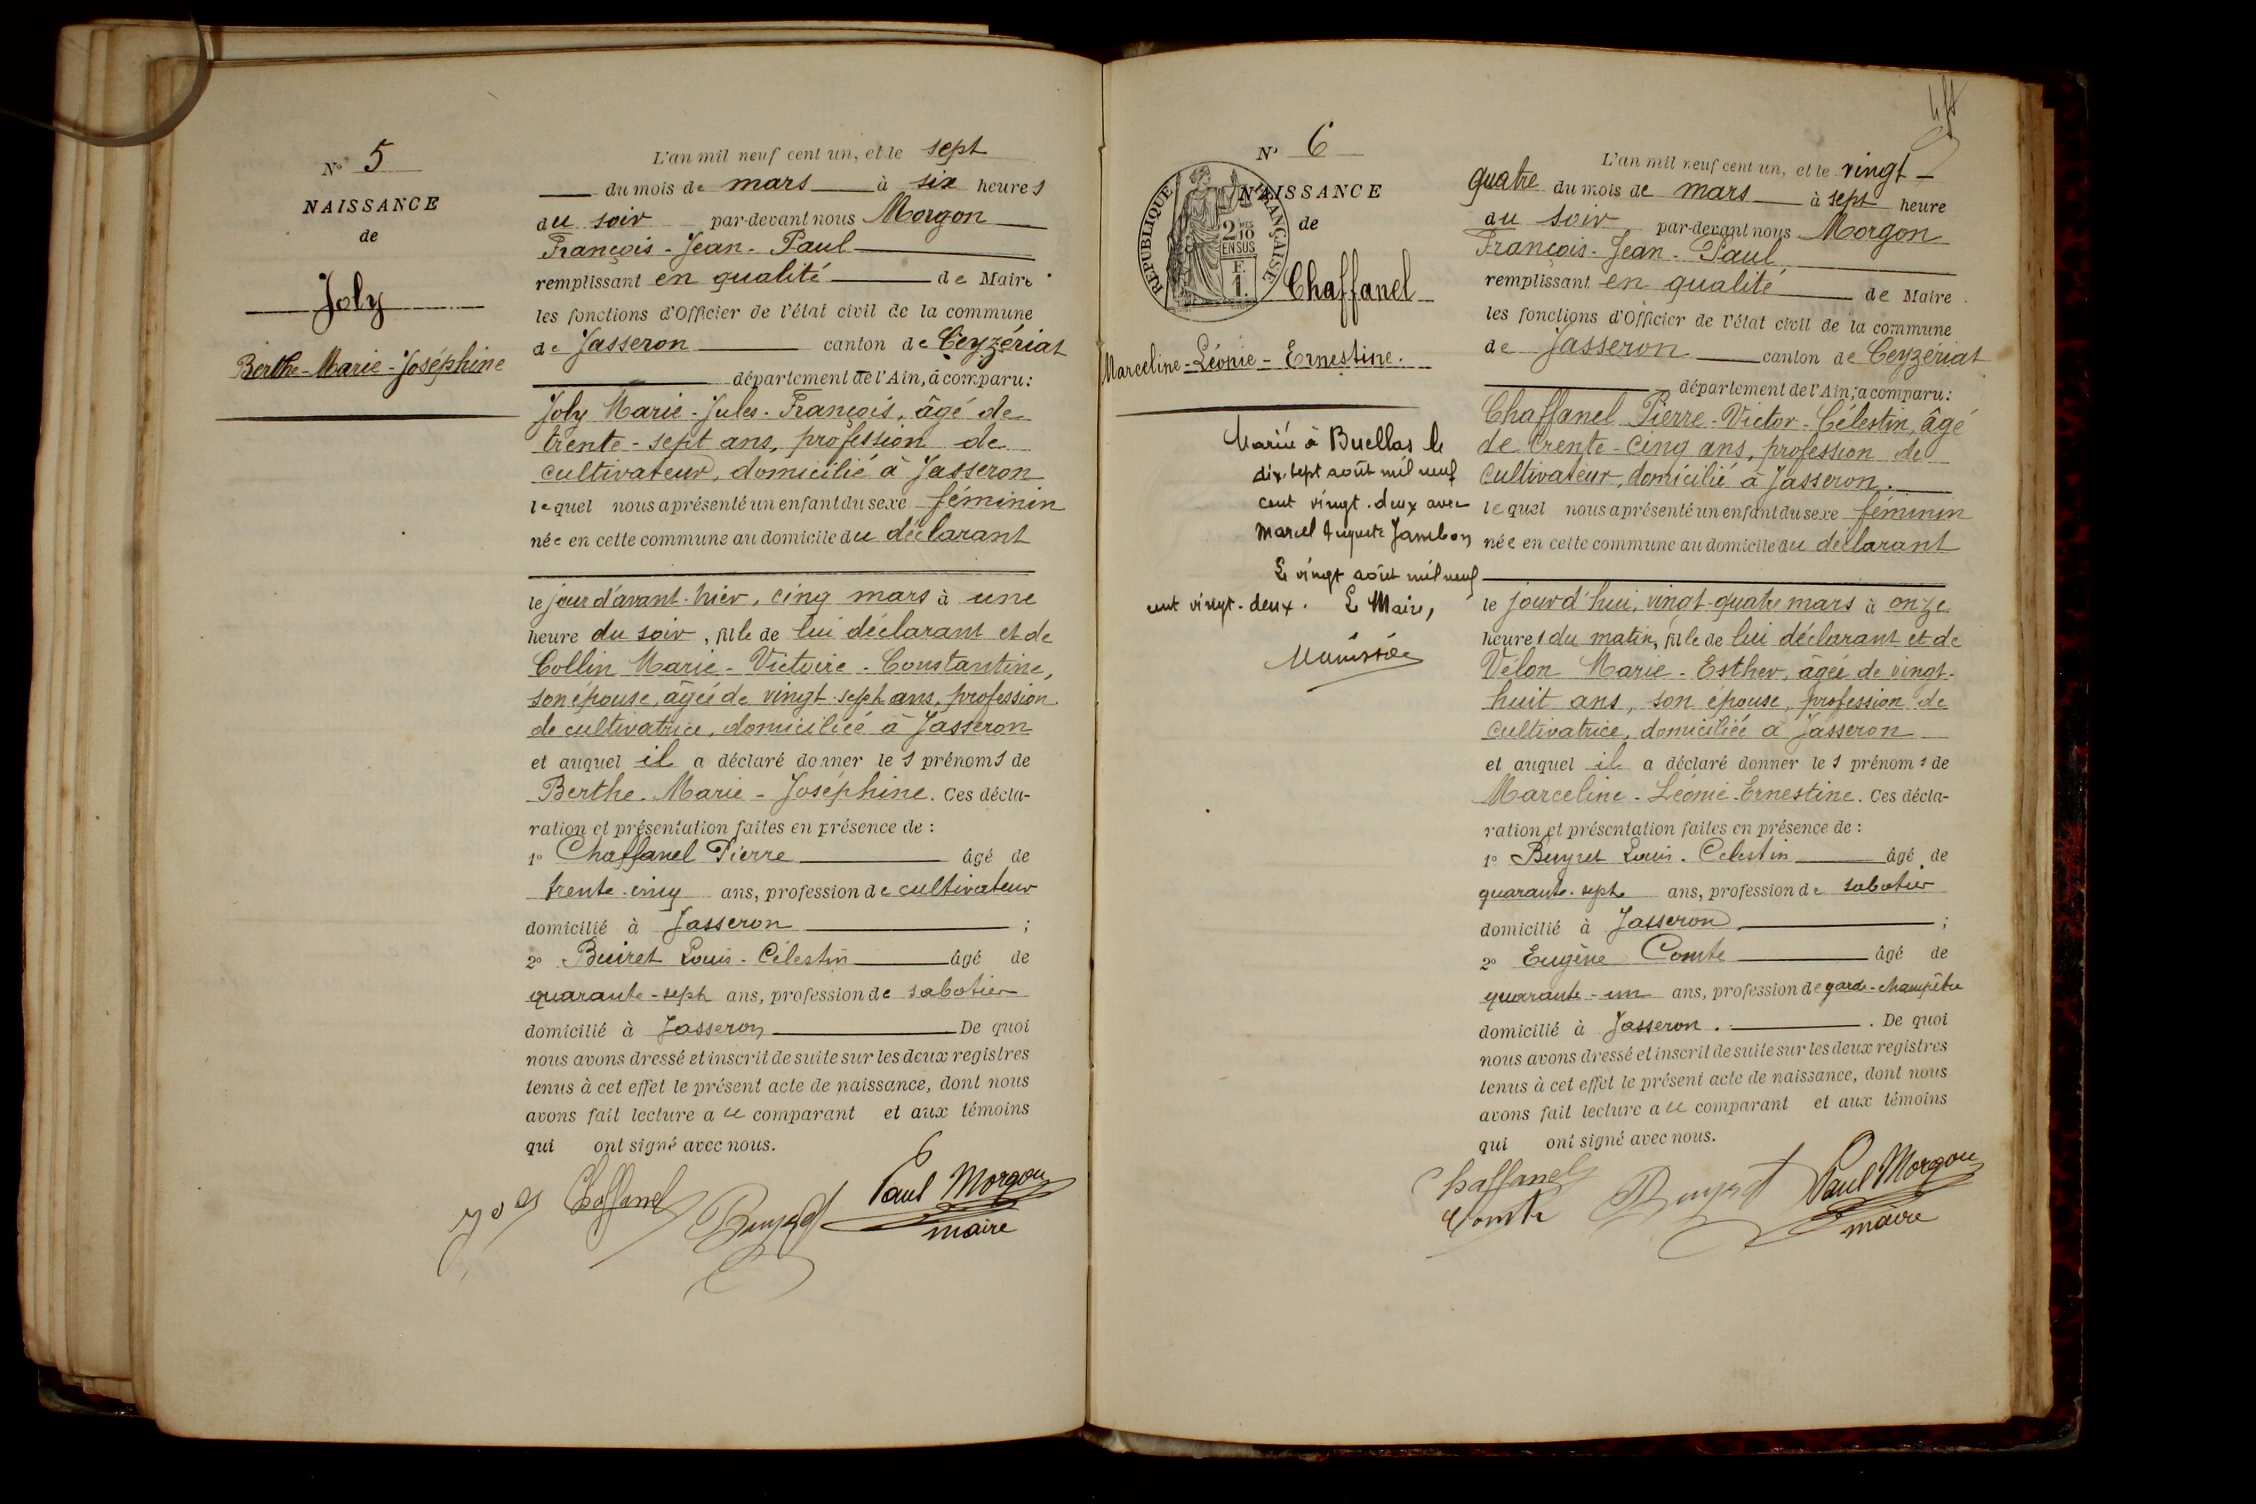 N° 5
NAISSANCE
de
Joly
Berthe-Marie-Joséphine
L'an mil neuf cent un, et le sept
du mois de mars à six heures
du soir par-devant nous Morgon
François-Jean-Paul
remplissant en qualité de Maire
les fonctions d'Officier de l'état civil de la commune
de Jasseron canton de Ceyzériat
département de l'Ain, a comparu:
Joly Marie-Jules-François, âgé de
trente-sept ans, profession de
cultivateur, domicilié à Jasseron
lequel nous a présenté un enfant du sexe féminin
née en cette commune au domicile du déclarant
le jour d'avant-hier, cinq mars à une
heure du soir, fille de lui déclarant et de
Collin Marie-Victoire-Constantine,
son épouse, âgée de vingt-sept ans, profession
de cultivatrice, domiciliée à Jasseron
et auquel il a déclaré donner les prénoms de
Berthe-Marie-Joséphine. Ces décla-
ration et présentation faites en présence de :
1° Chaffanel Pierre âgé de
trente-cinq ans, profession de cultivateur
domicilié à Jasseron ;
2° Buiret Louis-Célestin âgé de
quarante-sept ans, profession de sabotier
domicilié à Jasseron De quoi
nous avons dressé et inscrit de suite sur les deux registres
tenus à cet effet le présent acte de naissance, dont nous
avons fait lecture au comparant et aux témoins
qui ont signé avec nous.
Chaffanel Paul Morgon
maire
N° 6
NAISSANCE
de
RÉPUBLIQUE FRANÇAISE
2 MES
10
EN SUS
F.
1.
Chaffanel
Marceline-Léonie-Ernestine.
Mariée à Buellas le
dix-sept août mil neuf
cent vingt-deux avec
Marcel Auguste Jambon
Le vingt août mil neuf
cent vingt-deux. Le Maire,
L'an mil neuf cent un, et le vingt-
quatre du mois de mars à sept heure
du soir par-devant nous Morgon
François-Jean-Paul
remplissant en qualité de Maire
les fonctions d'Officier de l'état civil de la commune
de Jasseron canton de Ceyzériat
département de l'Ain, a comparu:
Chaffanel Pierre-Victor-Célestin, âgé
de trente-cinq ans, profession de
cultivateur, domicilié à Jasseron.
lequel nous a présenté un enfant du sexe féminin
née en cette commune au domicile du déclarant
le jourd'hui, vingt-quatre mars à onze
heures du matin, fille de lui déclarant et de
Vélon Marie-Esther, âgée de vingt-
huit ans, son épouse, profession de
cultivatrice, domiciliée à Jasseron
et auquel il a déclaré donner les prénoms de
Marceline-Léonie-Ernestine. Ces décla-
ration et présentation faites en présence de :
1° Buyret Louis-Celestin âgé de
quarante-sept ans, profession de sabotier
domicilié à Jasseron ;
2° Eugène Comte âgé de
quarante-un ans, profession de garde-champêtre
domicilié à Jasseron. De quoi
nous avons dressé et inscrit de suite sur les deux registres
tenus à cet effet le présent acte de naissance, dont nous
avons fait lecture au comparant et aux témoins
qui ont signé avec nous.
Chaffanel Buyret Paul Morgon
Comte maire